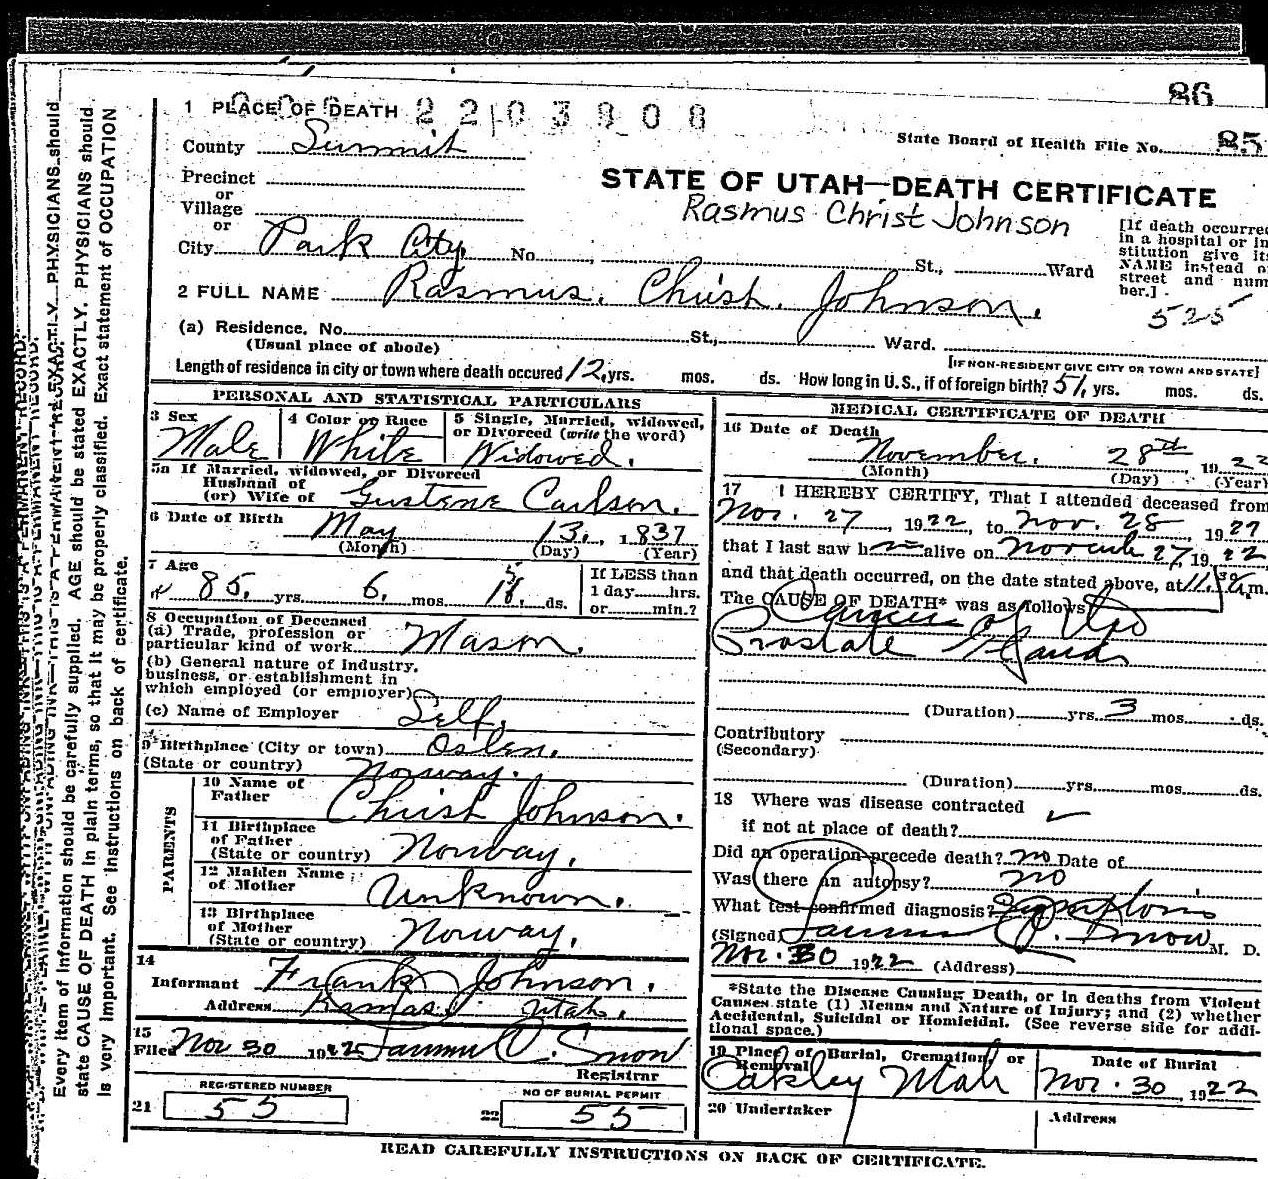 86
1 PLACE OF DEATH 2203808
State Board of Health File No. 85
County Summit
STATE OF UTAH—DEATH CERTIFICATE
Precinct
or
Village
Rasmus Christ Johnson
or
City Park City. No. St., Ward
[If death occurred in a hospital or in stitution give its NAME instead of street and num ber.]
2 FULL NAME Rasmus. Christ. Johnson.
525
(a) Residence. No. St., Ward.
(Usual place of abode)
[IF NON-RESIDENT GIVE CITY OR TOWN AND STATE]
Length of residence in city or town where death occured 12, yrs. mos. ds. How long in U.S., if of foreign birth? 51, yrs. mos. ds.
PERSONAL AND STATISTICAL PARTICULARS
3 Sex
Male
4 Color or Race
White
5 Single, Married, widowed, or Divorced (write the word)
Widowed.
5a If Married, widowed, or Divorced
Husband of
(or) Wife of Gustene Carlson.
6 Date of Birth
May 13., 1837
(Month) (Day) (Year)
7 Age
85. yrs. 6. mos. ds.
If LESS than
1 day hrs.
or min.?
8 Occupation of Deceased
(a) Trade, profession or
particular kind of work Mason.
(b) General nature of Industry,
business, or establishment in
which employed (or employer)
(c) Name of Employer Self.
9 Birthplace (City or town) Oslen.
(State or country) Norway.
PARENTS
10 Name of
Father Christ Johnson.
11 Birthplace
of Father
(State or country) Norway.
12 Maiden Name
of Mother Unknown.
13 Birthplace
of Mother
(State or country) Norway.
14
Informant Frank Johnson.
Address Kamas Utah.
15
Filed Nov 30 1922 O. Snow
Registrar
REGISTERED NUMBER
21 55
NO OF BURIAL PERMIT
22 55
MEDICAL CERTIFICATE OF DEATH
16 Date of Death
November. 28th, 1922
(Month) (Day) (Year)
17 I HEREBY CERTIFY, That I attended deceased from
Nov. 27, 1922, to Nov. 28, 1922
that I last saw h alive on 27, 1922,
and that death occurred, on the date stated above, at 11.30 m.
The CAUSE OF DEATH* was as follows:
Cancer of the
Prostate Gland
(Duration) yrs. 3 mos. ds.
Contributory
(Secondary)
(Duration) yrs. mos. ds.
18 Where was disease contracted
if not at place of death?
Did an operation precede death? no Date of
Was there an autopsy? no
What test confirmed diagnosis? Symptoms
(Signed) O. Snow M. D.
Nov. 30 1922 (Address)
*State the Disease Causing Death, or in deaths from Violent
Causes state (1) Means and Nature of Injury; and (2) whether
Accidental, Suicidal or Homicidal. (See reverse side for addi-
tional space.)
19 Place of Burial, Cremation, or
Removal
Oakley Utah
Date of Burial
Nov. 30, 1922
20 Undertaker
Address
READ CAREFULLY INSTRUCTIONS ON BACK OF CERTIFICATE.
Every item of information should be carefully supplied. AGE should be stated EXACTLY. PHYSICIANS should
state CAUSE OF DEATH in plain terms, so that it may be properly classified. Exact statement of OCCUPATION
is very important. See instructions on back of certificate.